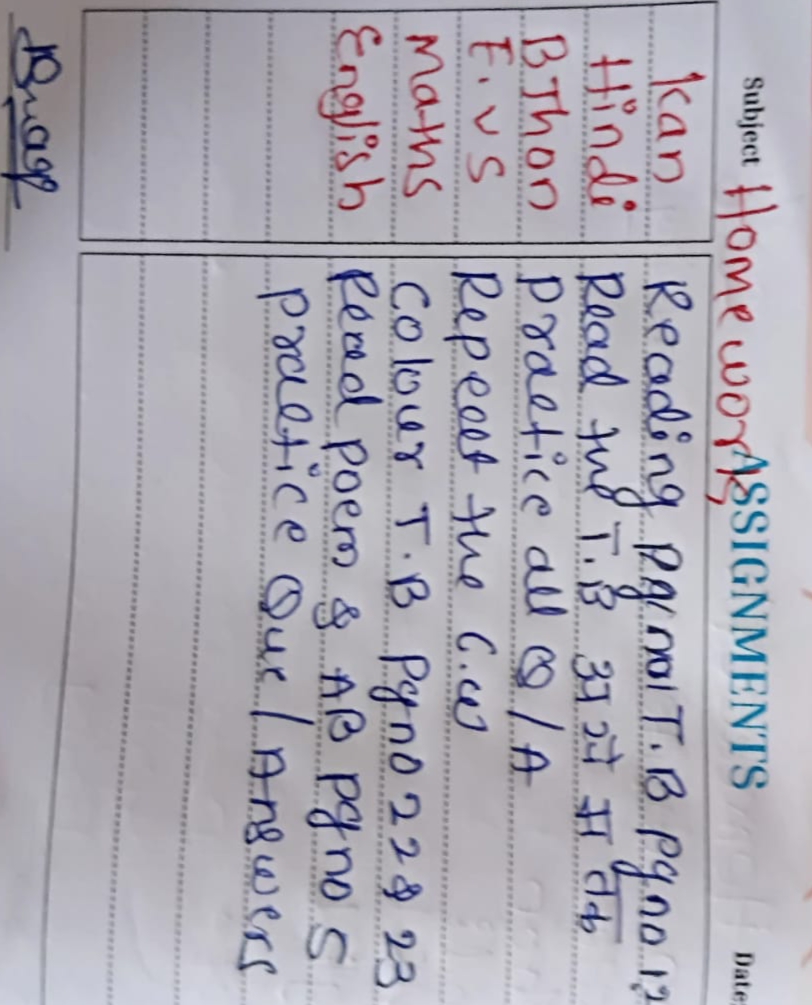 Subject Home work ASSIGNMENTS Date
Kan Reading Pg no 1 T.B Pg no 12
Hindi Read the T.B अ से म तक
B Thon Practice all Q/A
E.V S Repeat the C.W
Maths Colour T.B Pg no 22 & 23
English Read Poem & AB Pg no 5
Practice Que/Answers